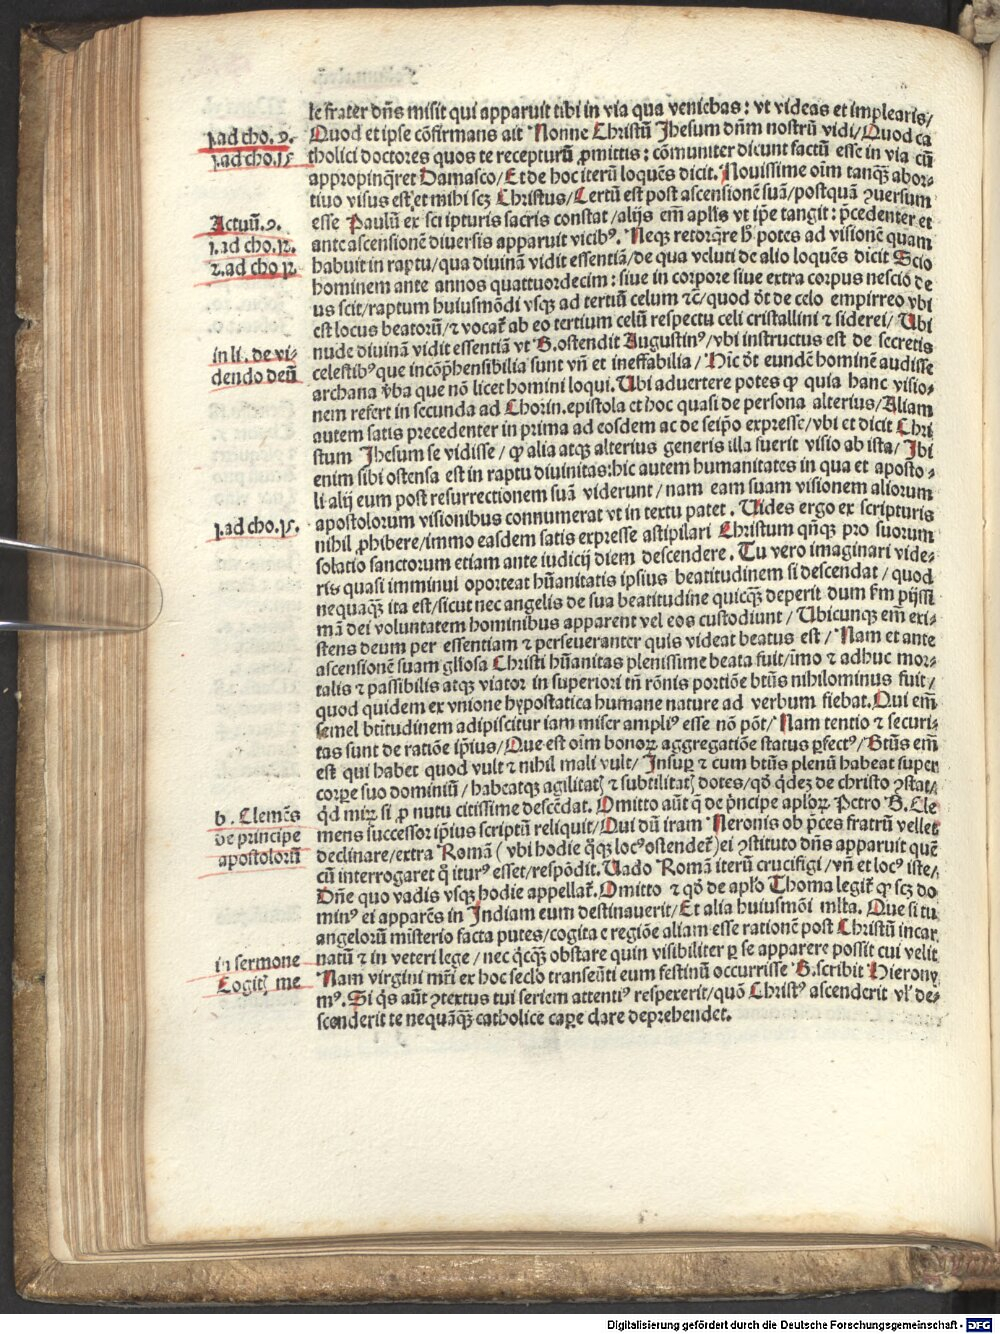 le frater dn̄s misit qui apparuit tibi in via qua veniebas: vt videas et implearis/
Quod et ipse cōfirmans ait Nonne Christū Jhesum dn̄m nostrū vidi/Quod ca
tholici doctores quos te recepturū ꝓmittis: cōmuniter dicunt factū esse in via cū
appropinq̄ret Damasco/Et de hoc iterū loquēs dicit. Nouissime oīm tanqȝ abor⸗
tiuo visus est et mihi scȝ Christus/Certū est post ascensionē suā/postquā ꝯuersum
esse Paulū ex scripturis sacris constat/alijs em̄ apl̄is vt ip̄e tangit: p̄cedenter et
ante ascensionē diuersis apparuit vicibꝰ. Neqȝ retorq̄re h̄ potes ad visionē quam
habuit in raptu/qua diuinā vidit essentiā/de qua veluti de alio loquēs dicit Scio
hominem ante annos quattuordecim: siue in corpore siue extra corpus nesciō de
us scit/raptum huiusmōdi vsqȝ ad tertiū celum ⁊c̄/quod d̄t de celo empirreo vbi
est locus beatorū/⁊ vocat̄ ab eo tertium celū respectu celi cristallini ⁊ siderei/Ubi
nude diuinā vidit essentiā vt B. ostendit Augustinꝰ/vbi instructus est de secretis
celestibꝰ que incōp̄hensibilia sunt vn̄ et ineffabilia/Hīc d̄t eundē hominē audisse
archana v̄ba que nō licet homini loqui. Ubi aduertere potes ꝙ quia hanc visio⸗
nem refert in secunda ad Chorin. epistola et hoc quasi de persona alterius/Aliam
autem satis precedenter in prima ad eosdem ac de seip̄o expresse/vbi et dicit Chri
stum Jhesum se vidisse/ꝙ alia atqȝ alterius generis illa fuerit visio ab ista/Ibi
enim sibi ostensa est in raptu diuinitas: hic autem humanitates in qua et aposto⸗
li alij eum post resurrectionem suā viderunt/nam eam suam visionem aliorum
apostolorum visionibus connumerat vt in textu patet. Uides ergo ex scripturis
nihil ꝓhibere/immo easdem satis expresse astipilari Christum qn̄qȝ pro suorum
solatio sanctorum etiam ante iudicij diem descendere. Tu vero imaginari vide⸗
ris quasi imminui oporteat hūanitatis ipsius beatitudinem si descendat/quod
nequaqȝ ita est/sicut nec angelis de sua beatitudine quicqȝ deperit dum ẜm pijssi
mā dei voluntatem hominibus apparent vel eos custodiunt/Ubicunqȝ em̄ exi⸗
stens deum per essentiam ⁊ perseueranter quis videat beatus est/Nam et ante
ascensionē suam gl̄iosa Christi hūanitas plenissime beata fuit/īmo ⁊ adhuc mor⸗
talis ⁊ passibilis atqȝ viator in superiori tn̄ rōnis portiōe btūs nihilominus fuit/
quod quidem ex vnione hypostatica humane nature ad verbum fiebat. Qui em̄
semel btitudinem adipiscitur iam miser ampliꝰ esse nō pōt/Nam tentio ⁊ securi⸗
tas sunt de ratiōe ip̄ius/Que est oīm bonoꝝ aggregatiōe status ꝑfectꝰ/Btūs em̄
est qui habet quod vult ⁊ nihil mali vult/Insuꝑ ⁊ cum btūs plenū habeat super
corꝑe suo dominiū/habeatqȝ agilitatꝭ ⁊ subtilitatꝭ dotes/qd̄ q̄deȝ de christo ꝯstat/
qd̄ miꝝ si ꝓ nutu citissime descēdat. Omitto aūt q̄ de p̄ncipe apl̄oꝝ Petro B. Cle
mens successor ip̄ius scriptū reliquit/Qui dū iram Neronis ob p̄ces fratrū vellet
declinare/extra Romā (vbi hodie q̄qȝ locꝰ ostendet̄) ei ꝯstituto dn̄s apparuit quē
cū interrogaret q̄ iturꝰ esset/respōdit. Uado Romā iterū crucifigi/vn̄ et locꝰ iste/
Dn̄e quo vadis vsqȝ hodie appellat̄. Omitto ⁊ qd̄ de apl̄o Thoma legit̄ ꝙ scȝ do
minꝰ ei apparēs in Indiam eum destinauerit/Et alia huiusmōi ml̄ta. Que si tu
angelorū mīsterio facta putes/cogita e regiōe aliam esse rationē post Christū incar
natū ⁊ in veteri lege/nec q̄cqȝ obstare quin visibiliter ꝑ se apparere possit cui velit
Nam virgini mr̄i ex hoc secl̄o transeūti eum festinū occurrisse B. scribit Hierony
mꝰ. Si q̄s aūt ꝯtextus tui seriem attentiꝰ respexerit/quō Christꝰ ascenderit vl̓ de⸗
scenderit te nequāqȝ catholice caꝑe clare deprehendet.
j. ad cho. 9.
j. ad cho. 15
Actuū. 9.
j. ad cho. 12.
2. ad cho 12
in li. de vi⸗
dendo deū
j. ad cho. 15.
b. Clemēs
de principe
apostolorū
in sermone
Cogitꝭ me
Digitalisierung gefördert durch die Deutsche Forschungsgemeinschaft - DFG